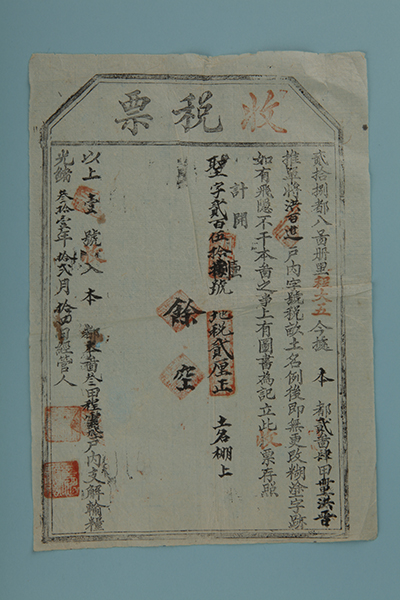 收稅票
貳拾捌都八啚册里程大五今據本都貳啚肆甲
推單將洪百進戶内字號稅畝土名例後即無更改糊塗字跡
如有飛隱不干本啚之事上有圖書為記立此收票存照
計開
聖字貳百伍拾號 地稅貳厘正 土名棚上
餘空
以上壹號收入本都啚叁甲程戶内支解輸糧
光緒叁拾壹年拾貳月拾四日經管人